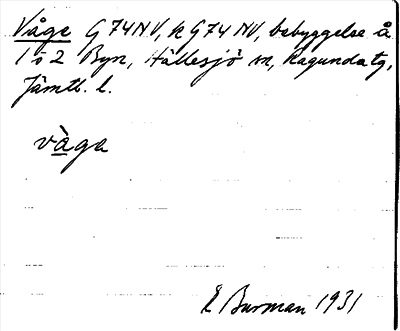 Våge G74NV, k G74 NV, bebyggelse å
1 o 2 Byn, Hällesjö sn, Ragunda tg,
Jämtl. l.
vàga
E Burman 1931